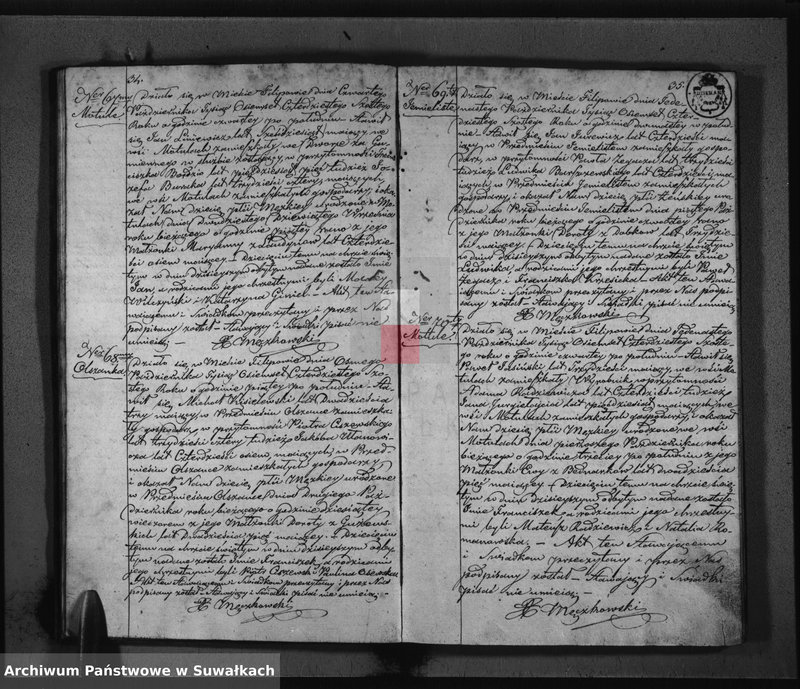 34.
Nro 67my
Motule
Działo się w Mieście Filipowie dnia Czwartego
Października Tysiąc Osiemset Czterdziestego Szóstego
Roku o godzinie czwartej po południu Stawił
się Jan Liniewicz lat Sześćdziesiąt mający we
wsi Motulach zamieszkały we dworze za Gu
miennego w służbie zostający, w przytomności Fran
ciszka Bożdio lat pięćdziesiąt pięć tudzież Jó
zefa Buraka lat trzydzieści cztery mających,
we wsi Motulach zamieszkałych gospodarzy, i oka
zał Nam dziecię płci Męzkiej urodzone w Mo
tulach dnia dwudziestego Dziewiątego Września
roku bieżącego o godzinie piątej rano z jego
Małżonki Maryanny z lat Czterdzie
ści osiem mającej — Dziecięciu temu na chrzcie świę
tym w dniu dzisiejszym odbytym nadane zostało Imie
Jan, a rodzicami jego chrzestnymi byli Maciej
Wilczyński i Katarzyna — Akt ten sta
wającemu i Świadkom przeczytany i przez Nas
podpisany został — Stawający i Świadki pisać nie
umieią. — X Męczkowski
Nro 68
Olszanka
Działo się w Mieście Filipowie dnia Osmego
Października Tysiąc Osiemset Czterdziestego Szó
stego Roku o godzinie piątej po południu — Sta
wił się Michał Kisielewski lat Dwadzieścia
trzy mający w Przedmieściu Olszance zamieszka
ły gospodarz, w przytomności Piotra Ciszewskiego
lat trzydzieści cztery tudzież Jakóba Ułanowi
cza lat Czterdzieści osiem, mających w Przed
mieściu Olszance zamieszkałych gospodarzy
i okazał Nam dziecię płci Męzkiej urodzone
w Przedmieściu Olszance dnia drugiego Paź
dziernika roku bieżącego o godzinie dziesiątej
wieczorem z jego Małżonki Doroty z
lat Dwadzieścia pięć mającej — Dziecięciu
temu na chrzcie świętym w dniu dzisiejszym odby
tym nadane zostało Imie Franciszek, a rodzicami
jego chrzestnymi byli Piotr Ciszewski i Paulina
Akt ten Stawającemu i Świadkom przeczytany i przez Nas
podpisany został — Stawający i Świadki pisać nie umieią. —
X Męczkowski
35.
Nro 69ty
Jemieliste
Działo się w Mieście Filipowie dnia Jede
nastego Października Tysiąc Osiemset Czter
dziestego Szóstego Roku o godzinie dwunastej w połud
nie — Stawił się Jan lat Czterdzieści mają
cy w Przedmieściu Jemielistem zamieszkały gospo
darz, w przytomności Pawła lat trzydzieści
tudzież Ludwika lat Czterdzieści ma
jących w Przedmieściu Jemielistem zamieszkałych
gospodarzy, i okazał Nam dziecię płci Żeńskiej uro
dzone w Przedmieściu Jemielistem dnia piątego Paź
dziernika roku bieżącego o godzinie czwartej rano
z jego Małżonki Doroty z lat Trzydzie
ści mającej — Dziecięciu temu na chrzcie świętym
w dniu dzisiejszym odbytym nadane zostało Imie
Ludwika, a rodzicami jego chrzestnymi byli Paweł
i Franciszka — Akt ten Stawa
jącemu i Świadkom przeczytany i przez Nas podpi
sany został — Stawający i Świadki pisać nie umieią. —
X Męczkowski
Nro 70ty
Motule
Działo się w Mieście Filipowie dnia Jedenastego
Października Tysiąc Osiemset Czterdziestego Szóste
go roku o godzinie czwartej po południu — Stawił się
Paweł lat Trzydzieści mający we wsi Mo
tulach zamieszkały Wyrobnik, w przytomności
Adama lat Czterdzieści tudzież
Jana lat Czterdzieści mających we
wsi Motulach zamieszkałych gospodarzy i okazał
Nam dziecię płci Męzkiej urodzone we wsi
Motulach dnia pierwszego Października roku
bieżącego o godzinie trzeciej po południu z jego
Małżonki Ewy z Bednarków lat Dwadzieścia
pięć mającej — Dziecięciu temu na chrzcie świę
tym w dniu dzisiejszym odbytym nadane zostało
Imie Franciszek, a rodzicami jego chrzestny
mi byli Mateusz i Natalia Ro
manowska. — Akt ten Stawającemu
i Świadkom przeczytany i przez Nas
podpisany został — Stawający i Świadki
pisać nie umieią. —
X Męczkowski
Archiwum Państwowe w Suwałkach